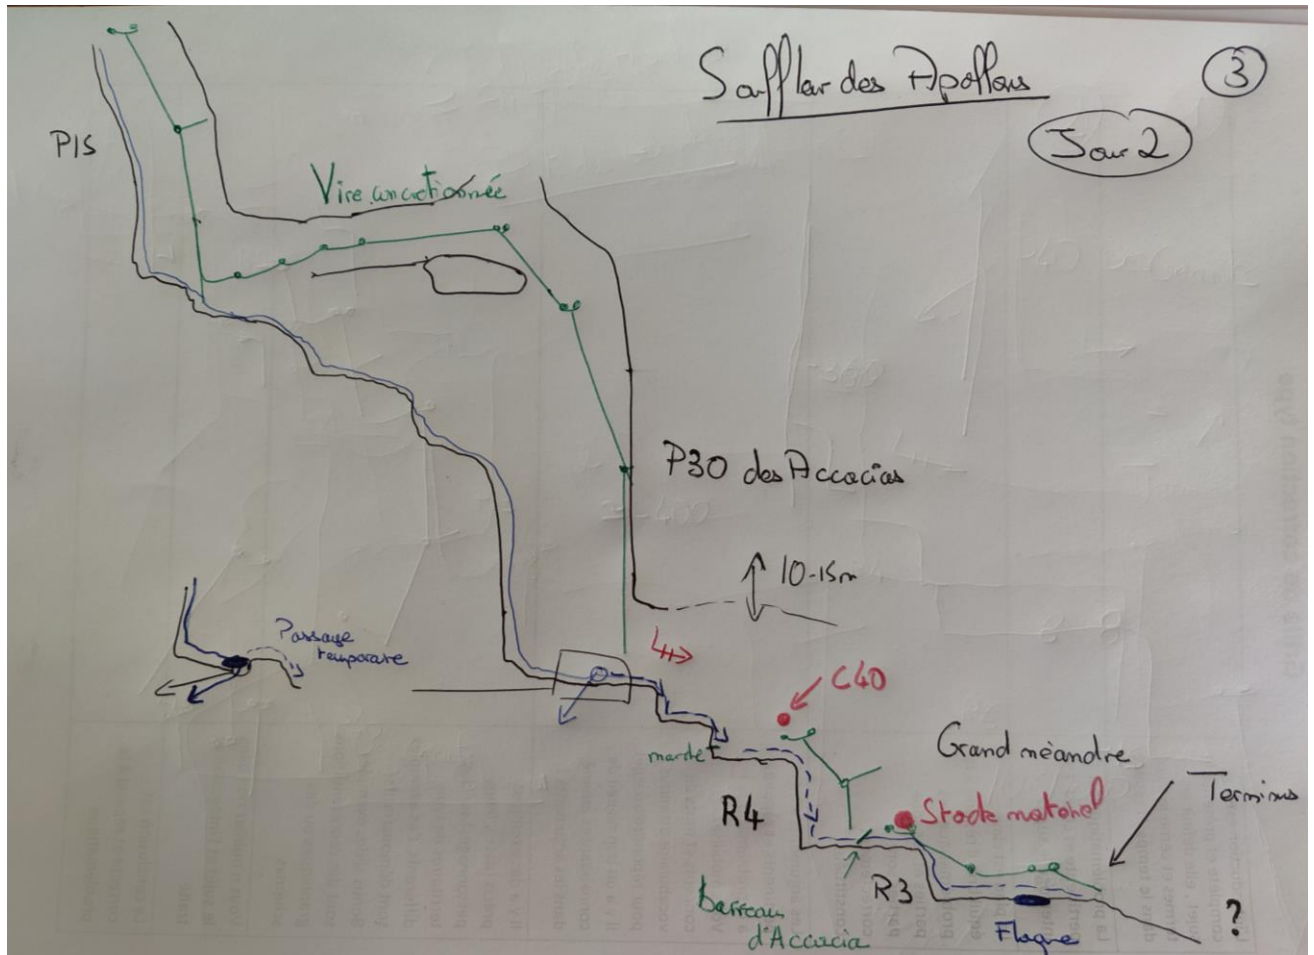 Souffleur des Apollons
3
Jour 2
P15
Vire cunctionnée
P30 des Accacias
10-15m
Passage
temporaire
C40
marche
Grand méandre
Terminus
R4
Stock matériel
R3
Barreau
d'Accacia
Flaque
?